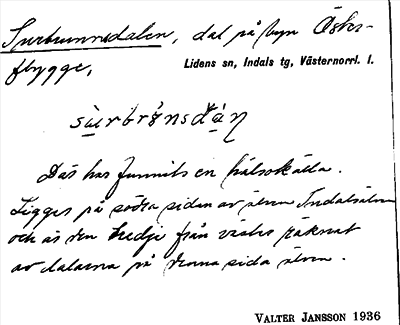 Surbrunnsdalen, dal på byn Öster-
flygge,
Lidens sn, Indals tg, Västernorrl. l.
sùrbrønsdàŋ
Där har funnits en hälsokälla.
Ligger på södra sidan av älven Indalsälven
och är den tredje från väster räknat
av dalarna på denna sida älven.
VALTER JANSSON 1936